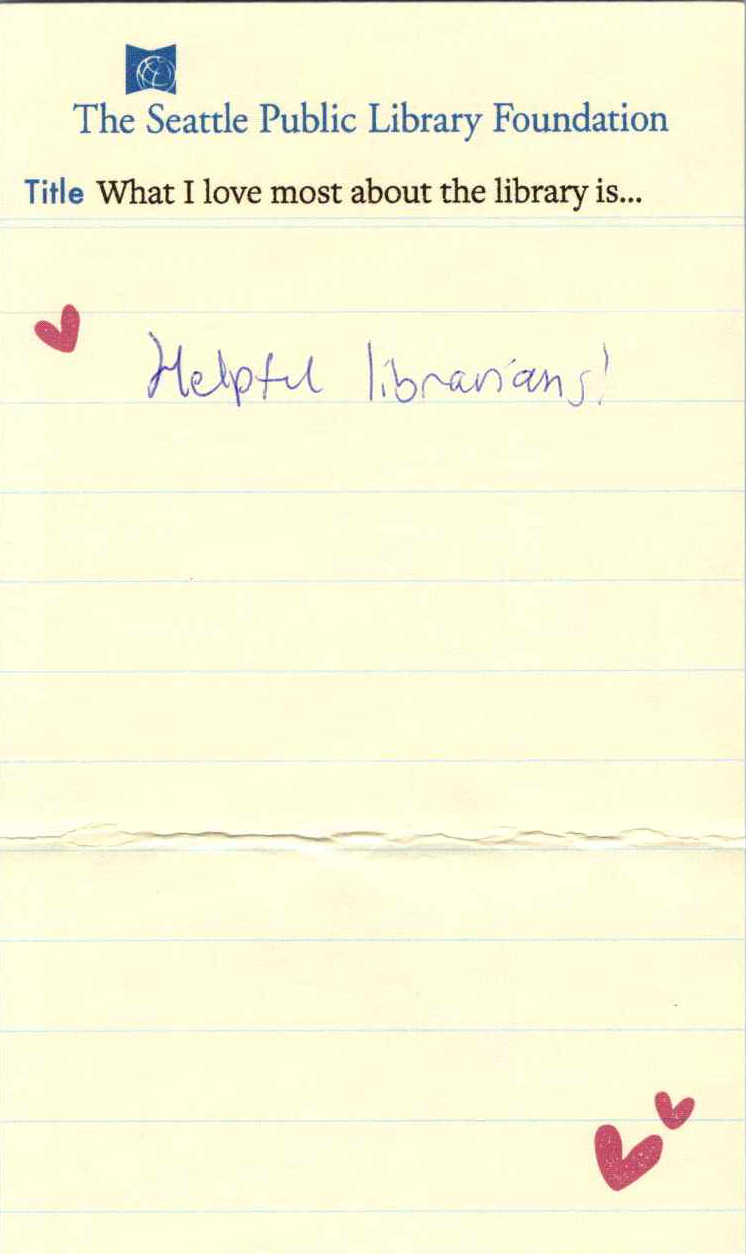 The Seattle Public Library Foundation
Title What I love most about the library is...
Helpful librarians!